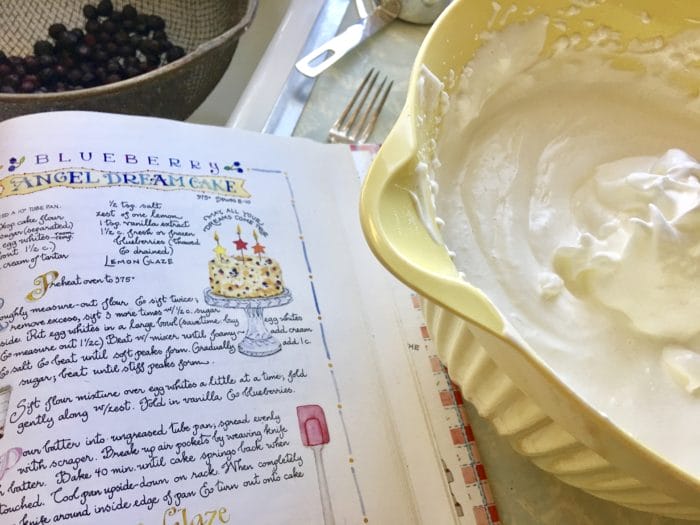 BLUEBERRY
ANGEL DREAM CAKE
375° Serves 8-10
A 10" TUBE PAN.
cake flour
sugar (separated)
egg whites (room temp.
about 1½ c.)
cream of tartar
½ tsp. salt
zest of one lemon
1 tsp. vanilla extract
1½ c. fresh or frozen
blueberries (thawed
& drained)
LEMON GLAZE
MAY ALL YOUR
DREAMS COME TRUE
Preheat oven to 375°
roughly measure-out flour & sift twice;
remove excess, sift 3 more times w/½ c. sugar
side. Put egg whites in a large bowl (save time: buy egg whites
& measure out 1½ c.) Beat w/mixer until foamy~ add cream
& salt & beat until soft peaks form. Gradually add 1 c.
sugar; beat until stiff peaks form.
Sift flour mixture over egg whites a little at a time; fold
gently along w/zest. Fold in vanilla & blueberries.
Pour batter into ungreased tube pan; spread evenly
with scraper. Break up air pockets by weaving knife
batter. Bake 40 min. until cake springs back when
touched. Cool pan upside-down on rack. When completely
knife around inside edge of pan & turn out onto cake
Glaze
THE